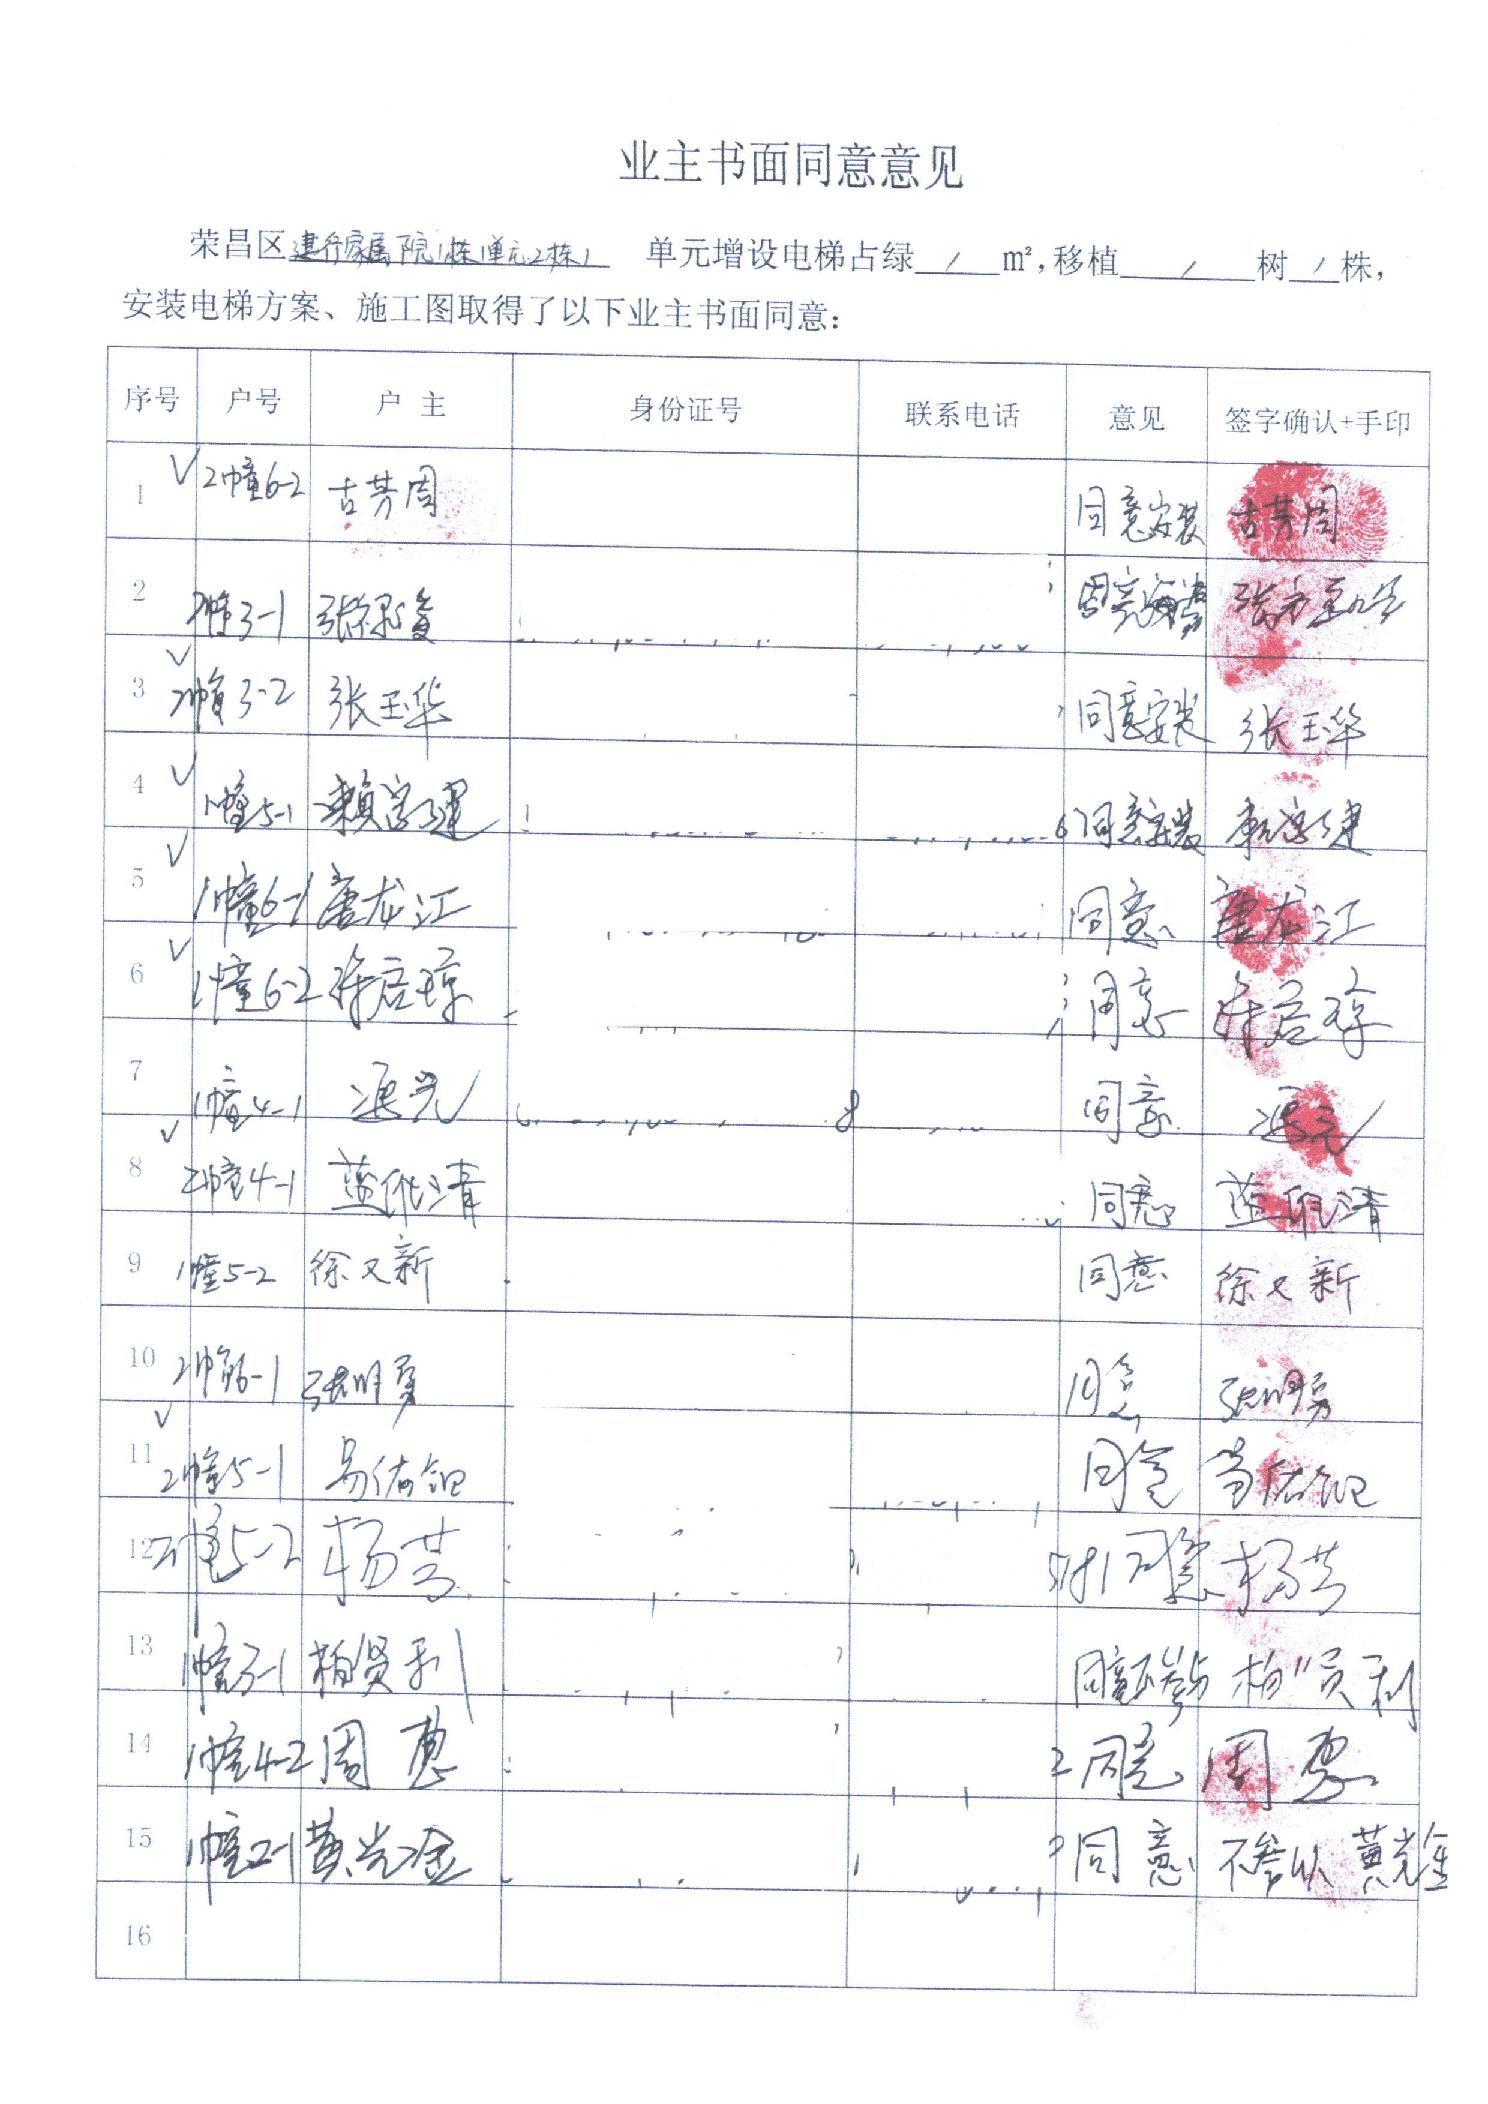 业主书面同意意见
荣昌区建行家属院1栋1单元2栋1 单元增设电梯占绿 / m²,移植 / 树 / 株,
安装电梯方案、施工图取得了以下业主书面同意:
序号 户号 户主 身份证号 联系电话 意见 签字确认+手印
1 √ 2幢6-2 古芳周 同意安装 古芳周
2 2幢3-1
3 √ 2幢3-2 张玉华 同意安装 张玉华
4 √ 1幢5-1 同意安装
5 √ 1幢6-1 唐龙江 同意 唐龙江
6 √ 1幢6-2 同意
7 1幢4-1 同意
8 √ 2幢4-1 同意
9 1幢5-2 徐又新 同意 徐又新
10 2幢6-1 张明勇 同意 张明勇
11 √ 2幢5-1 同意
12 2幢5-2 杨芸 同意 杨芸
13 1幢3-1 柏贤利 同意不参与 柏贤利
14 1幢4-2 周惠 同意 周惠
15 1幢2-1 黄光金 同意 黄光金
16